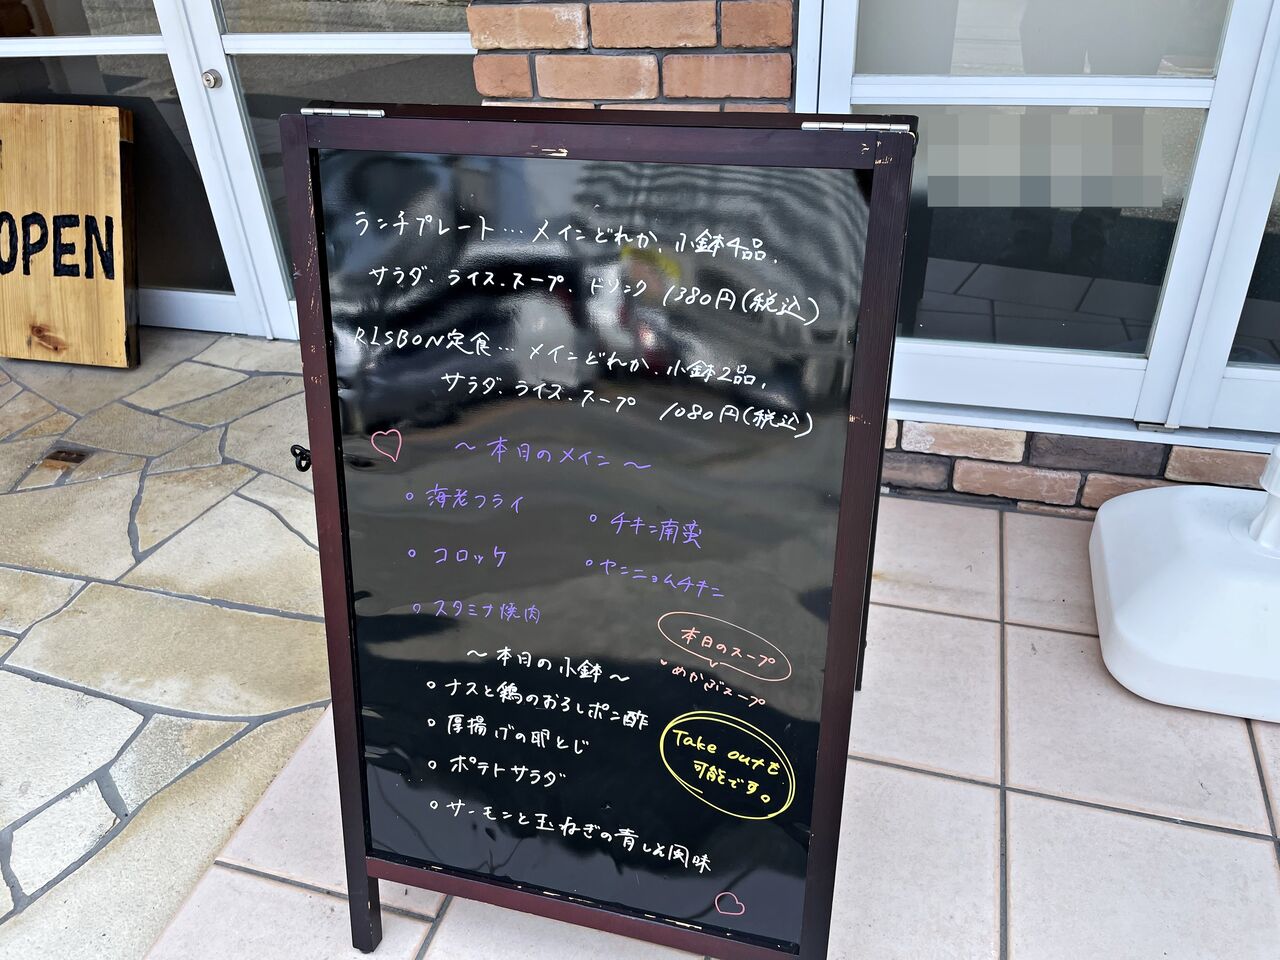 OPEN
ランチプレート… メインどれか、小鉢4品、
サラダ、ライス、スープ、ドリンク 1380円(税込)
RISBON定食… メインどれか、小鉢2品、
サラダ、ライス、スープ 1080円(税込)
〜本日のメイン〜
○ 海老フライ
○ チキン南蛮
○ コロッケ
○ ヤンニョムチキン
○ スタミナ焼肉
本日のスープ
めかぶスープ
〜本日の小鉢〜
○ ナスと鶏のおろしポン酢
○ 厚揚げの卵とじ
○ ポテトサラダ
○ サーモンと玉ねぎの青しそ風味
Take outも
可能です。